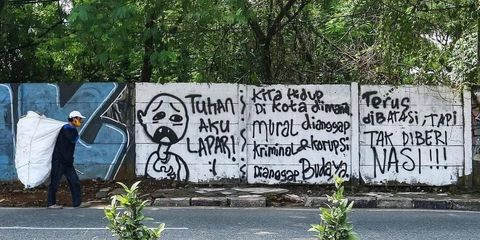 TUHAN
AKU
LAPAR!!
Kita Hidup
Di Kota dimana
mural dianggap
Kriminal & Korupsi
Dianggap Budaya
Terus
diBATASi, TAPI
TAK DIBERI
NASI!!!